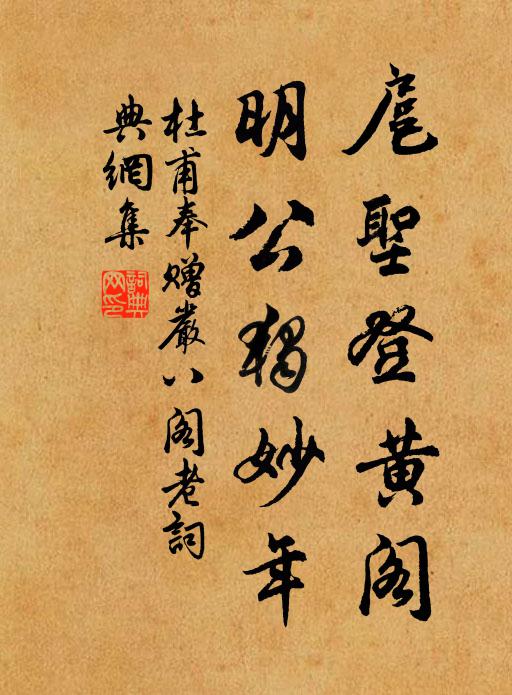 扈聖登黄阁
明公獨妙年
杜甫奉贈嚴八阁老詞
典網集
詞典
网印